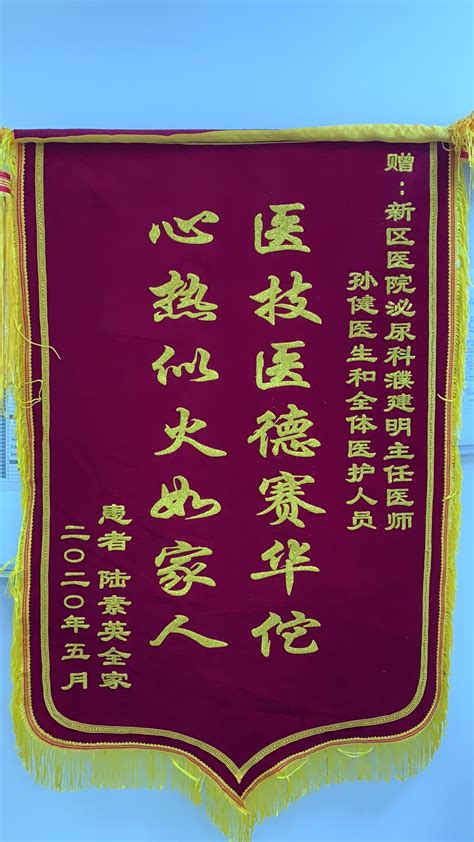 赠：新区医院泌尿科濮建明主任医师
孙健医生和全体医护人员
医技医德赛华佗
心热似火如家人
患者 陆素英全家
二〇二〇年五月